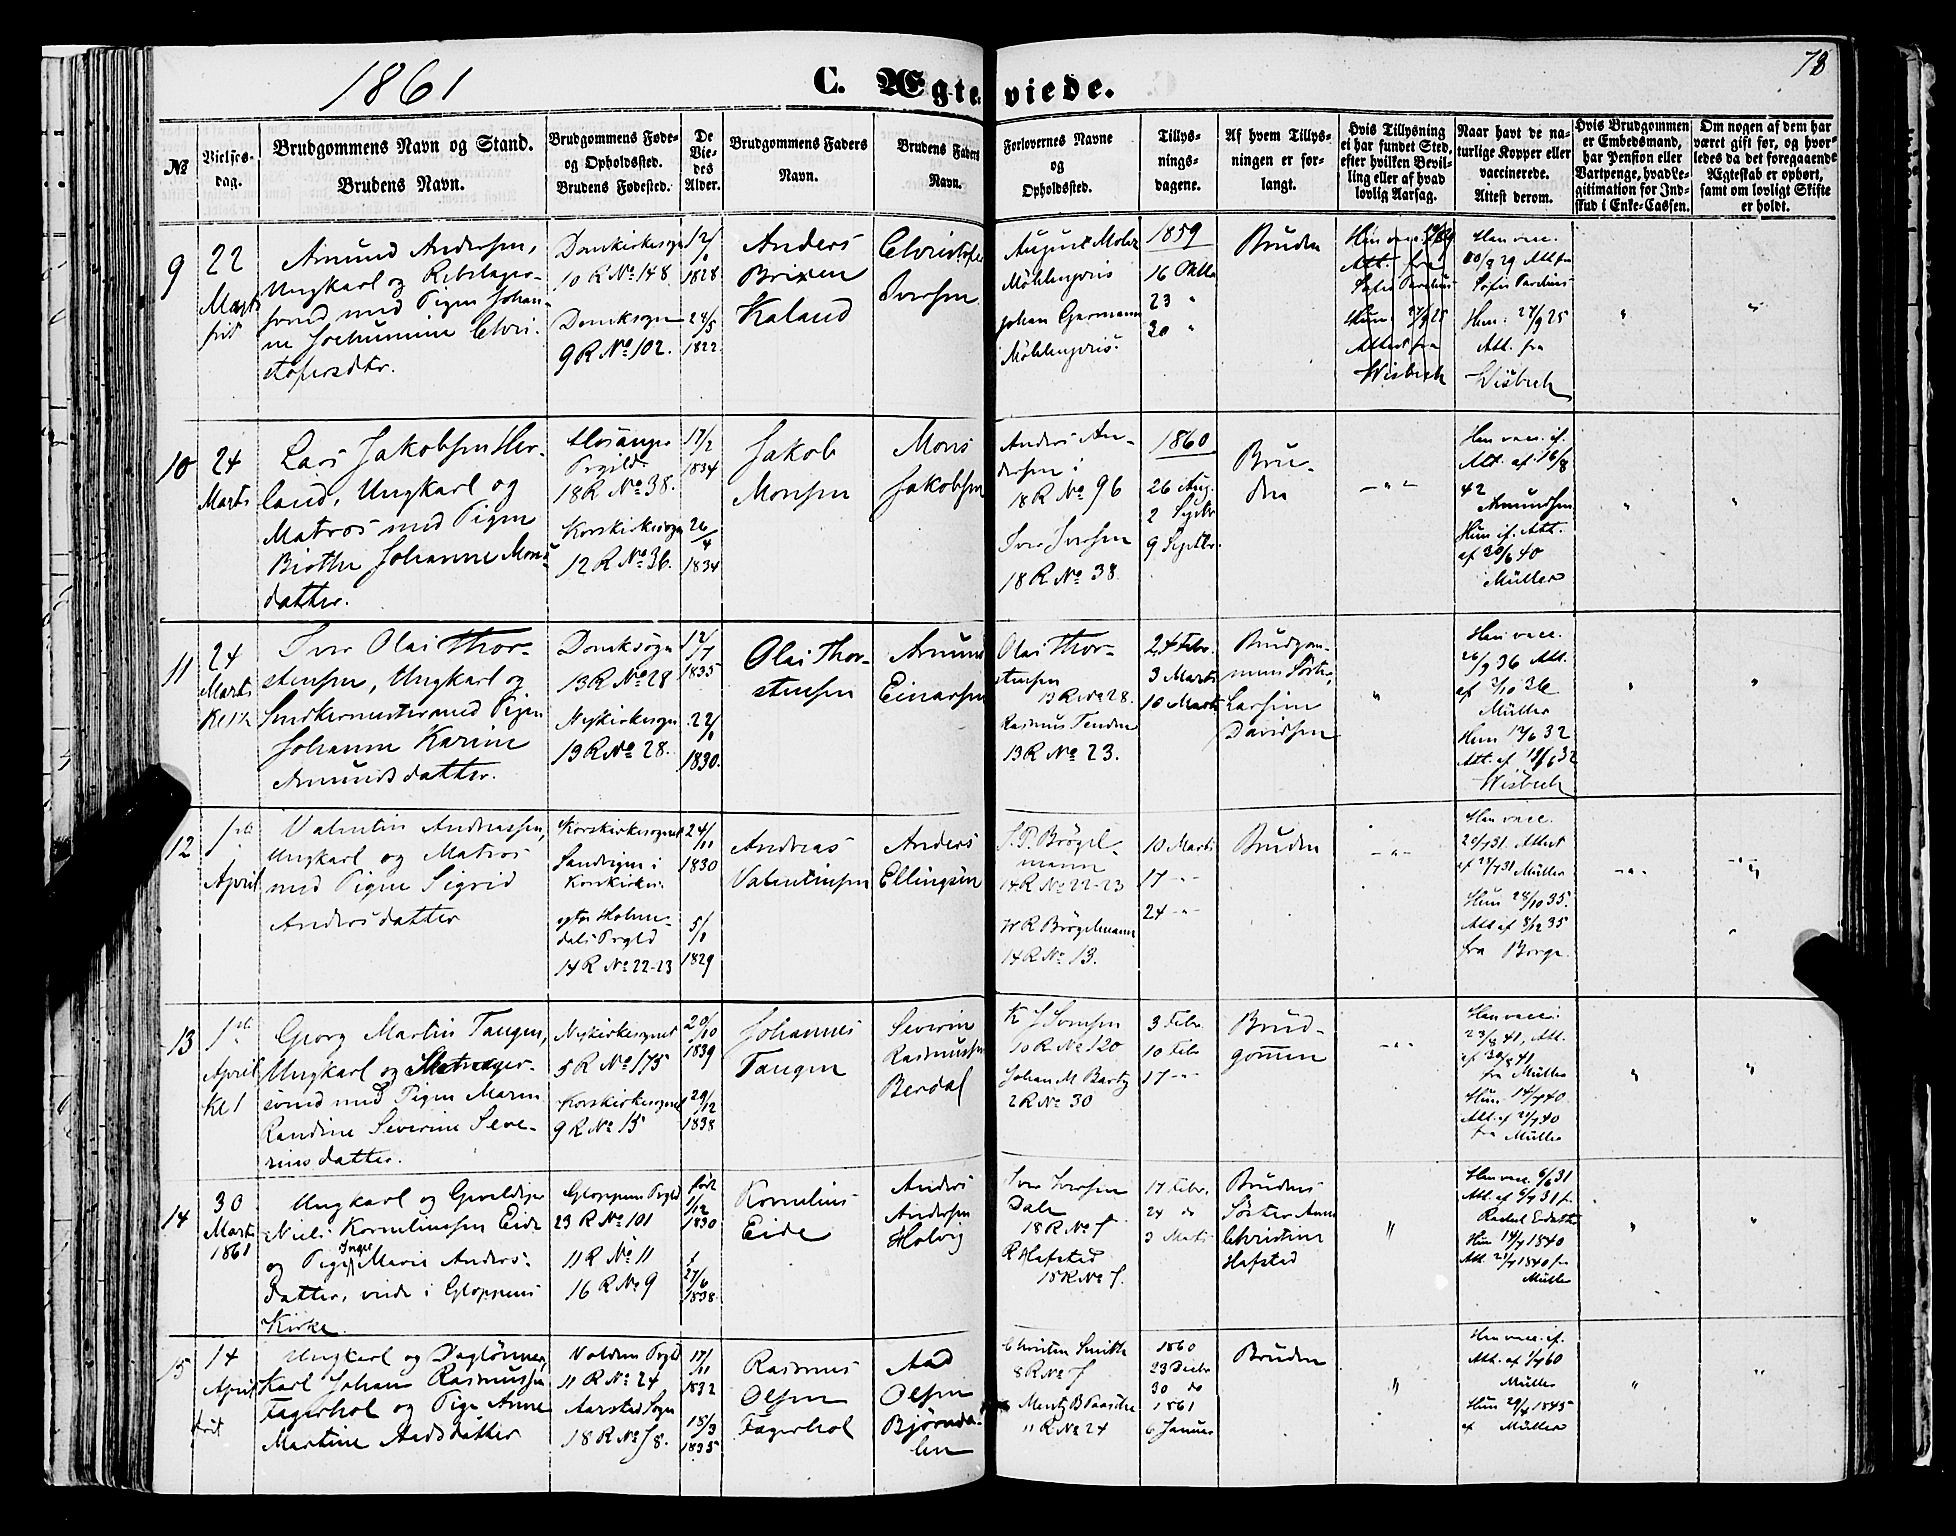 1861
C. Ægteviede.
78
№
Vielses-
dag.
Brudgommens Navn og Stand.
Brudens Navn.
Brudgommens Føde-
og Opholdssted.
Brudens Fødested.
De
Vie-
des
Alder.
Brudgommens Faders
Navn.
Brudens Faders
Navn.
Forlovernes Navne
og
Opholdssted.
Tillys-
nings-
dagene.
Af hvem Tillys-
ningen er for-
langt.
Hvis Tillysning
ei har fundet Sted,
efter hvilken Bevil-
ling eller af hvad
lovlig Aarsag.
Naar havt de na-
turlige Kopper eller
vaccinerede.
Attest derom.
Hvis Brudgommen
er Embedsmand,
har Pension eller
Vartpenge, hvad Le-
gitimation for Ind-
skud i Enke-Cassen.
Om nogen af dem har
været gift før, og hvor-
ledes da det foregaaende
Ægteskab er ophørt,
samt om lovligt Skifte
er holdt.
9
22
Marts
frit
Amund Andersen,
Ungkarl og Rebslager-
svend med Pigen Johan-
ne Jochumine Chri-
stofersdtr.
Domkirkesogn
10 R No 148.
Domksogn
9 R No 102.
1828
24/5
1822
Anders
Brixen
Kaland
Christofer
Iversen
August Mohr
Johan Garmann
1859
16 Oktbr
23 "
30 "
Bruden
Han vacc.
Att. fra
Hun
Attest fra
Wisbech
Han vacc.
Hun. 27/9 25
Att. fra
Wisbech
"
"
10
24
Marts
Lars Jakobsen Her-
land, Ungkarl og
Matros med Pigen
Birthe Johanne Mons-
datter.
Prgjld.
18 R No 38.
Korskirkesogn
12 R No 36.
17/2
1834
26/4
1834
Jakob
Monsen
Mons
Jakobsen
Anders An-
dersen i
18 R No 96
Iver Iversen
18 R No 38.
1860
26 Aug.
2 Septbr
9 Septbr.
Bru-
den
- " -
Han vacc. if.
Att. af 16/8
42
Amundsen
Hun if. Att.
af 30/6 40
Müller
"
"
11
24
Marts
Kl 12
Iver Olai Thor-
stensen, Ungkarl og
med Pigen
Johanne Karine
Amundsdatter.
Domksogn
13 R No 28
Nykirkesogn
13 R No 28.
1835
1830.
Olai Thor-
stensen
Amund
Einarsen
Olai Thor-
stensen
13 R No 28.
Rasmus
13 R No 23.
24 Febr.
3 Marts
10 Marts
Brudgom-
mens Søster,
Davidsen
"
Han vacc.
26/9 36 Att.
Müller
Hun
Wisbech
"
"
12
1ste
April
Valentin Andreassen,
Ungkarl og Matros
med Pigen Sigrid
Andersdatter
Korskirkesognet
Sandvigen i
Korskirkes.
ytre Holme-
dals Prgld
14 R No 22-23
24/11
1830
1829
Andreas
Valentinsen
Anders
Ellingsen
Brögel-
mann
14 R No 22-23
W R Brögelmann
14 R No 13.
10 Marts
17 - " -
24 - " -
Bruden
- " -
Han vacc.
Attest
Müller
Hun 28/10 35.
Att af 8/12 35
fra Borge.
- " -
"
13
1ste
April
Kl 1
Georg Martin Tangen,
Ungkarl og
svend med Pigen Maren
Randine Severine Seve-
rinsdatter.
Nykirkesognet
5 R No 175
Korskirkesognet
9 R No 15
20/10
1839
29/12
1838
Johannes
Tangen
Severin
Rasmussen
Berdal
10 R No 120
Johan M
2 R No 30
3 Febr.
10 Febr
17 - " -
Brud-
gommen
- " -
Han vacc.
23/8 41, Att.
af 30/8 41
fra Müller
Hun 14/7 40.
Att. af 21/7 40
fra Müller
"
"
14
30
Marts
1861
Ungkarl og Gevaldiger
Niels Kornelinssen Eide
og Pigen Inger Marie Anders-
datter, viede i Gloppens
Kirke.
Gloppens Prgld
23 R No 101
11 R No 11
16 R No 9
født
1/12
1830
27/6
1838
Kornelius
Eide
Anders
Andersen
Holvig
Iver Iversen
Dale
R Hafstad
17 Febr.
24 do
3 Marts
Brudens
Søster Anne
Christine
Hafstad
"
Han vacc. 6/6 31
Hun 14/7 1840
Att. 21/7 1840 fr.
Müller
"
"
15
14
April
frit
Ungkarl og Daglønner,
Karl Johan Rasmussen
Fagerhol og Pige Anne
Martine Aadsdatter
Voldens Prgld
11 R No 24
Aarstad Sogn
17/11
1832
18/3
1835
Rasmus
Olsen
Fagerhol
Aad
Olsen
Bjørnda-
len
Christen Smith
Mentz B Paasche
11 R No 24
1860
23 Decbr
30 do
1861
6 Januar
Bruden
"
Han vacc. if.
Att. af 1/7 60
Müller
Hun 29/4 1845
af Müller
"
"